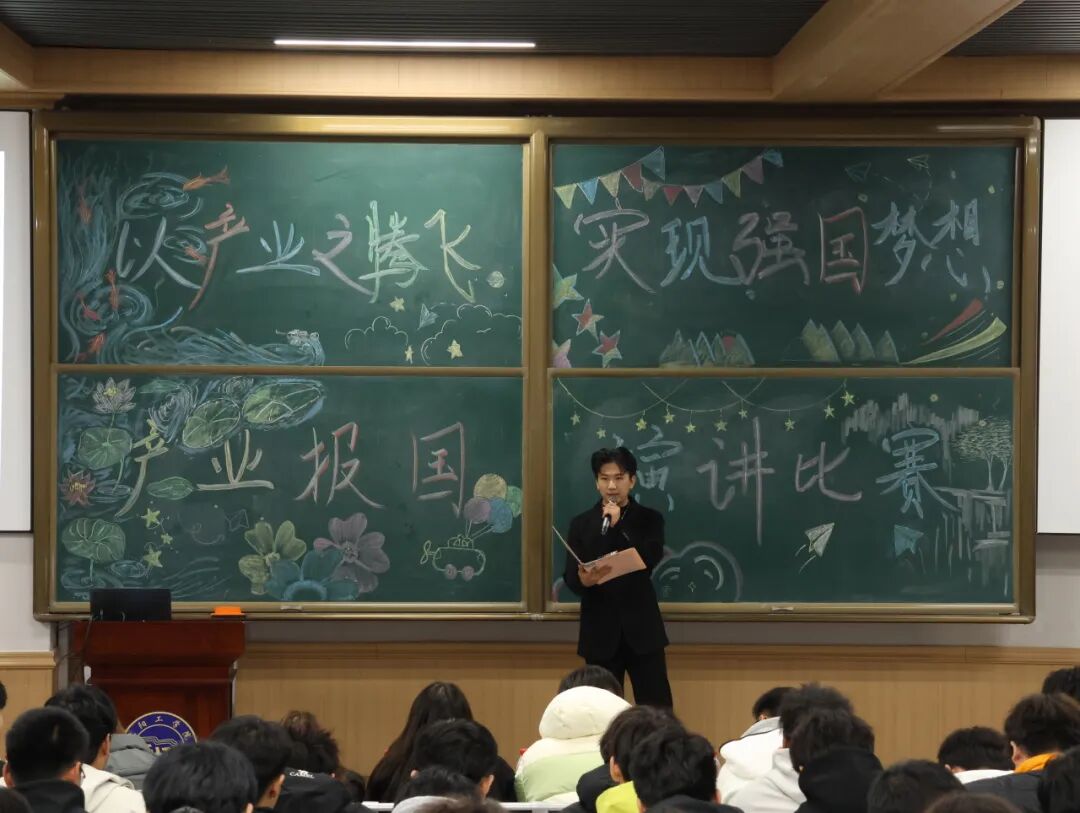 以产业之腾飞
实现强国梦想
产业报国
演讲比赛
阳工学院